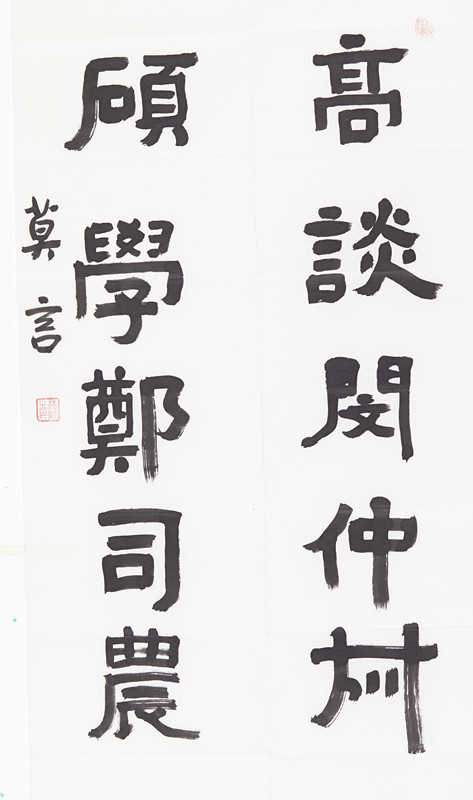 高談閔仲叔
碩學鄭司農
莫言